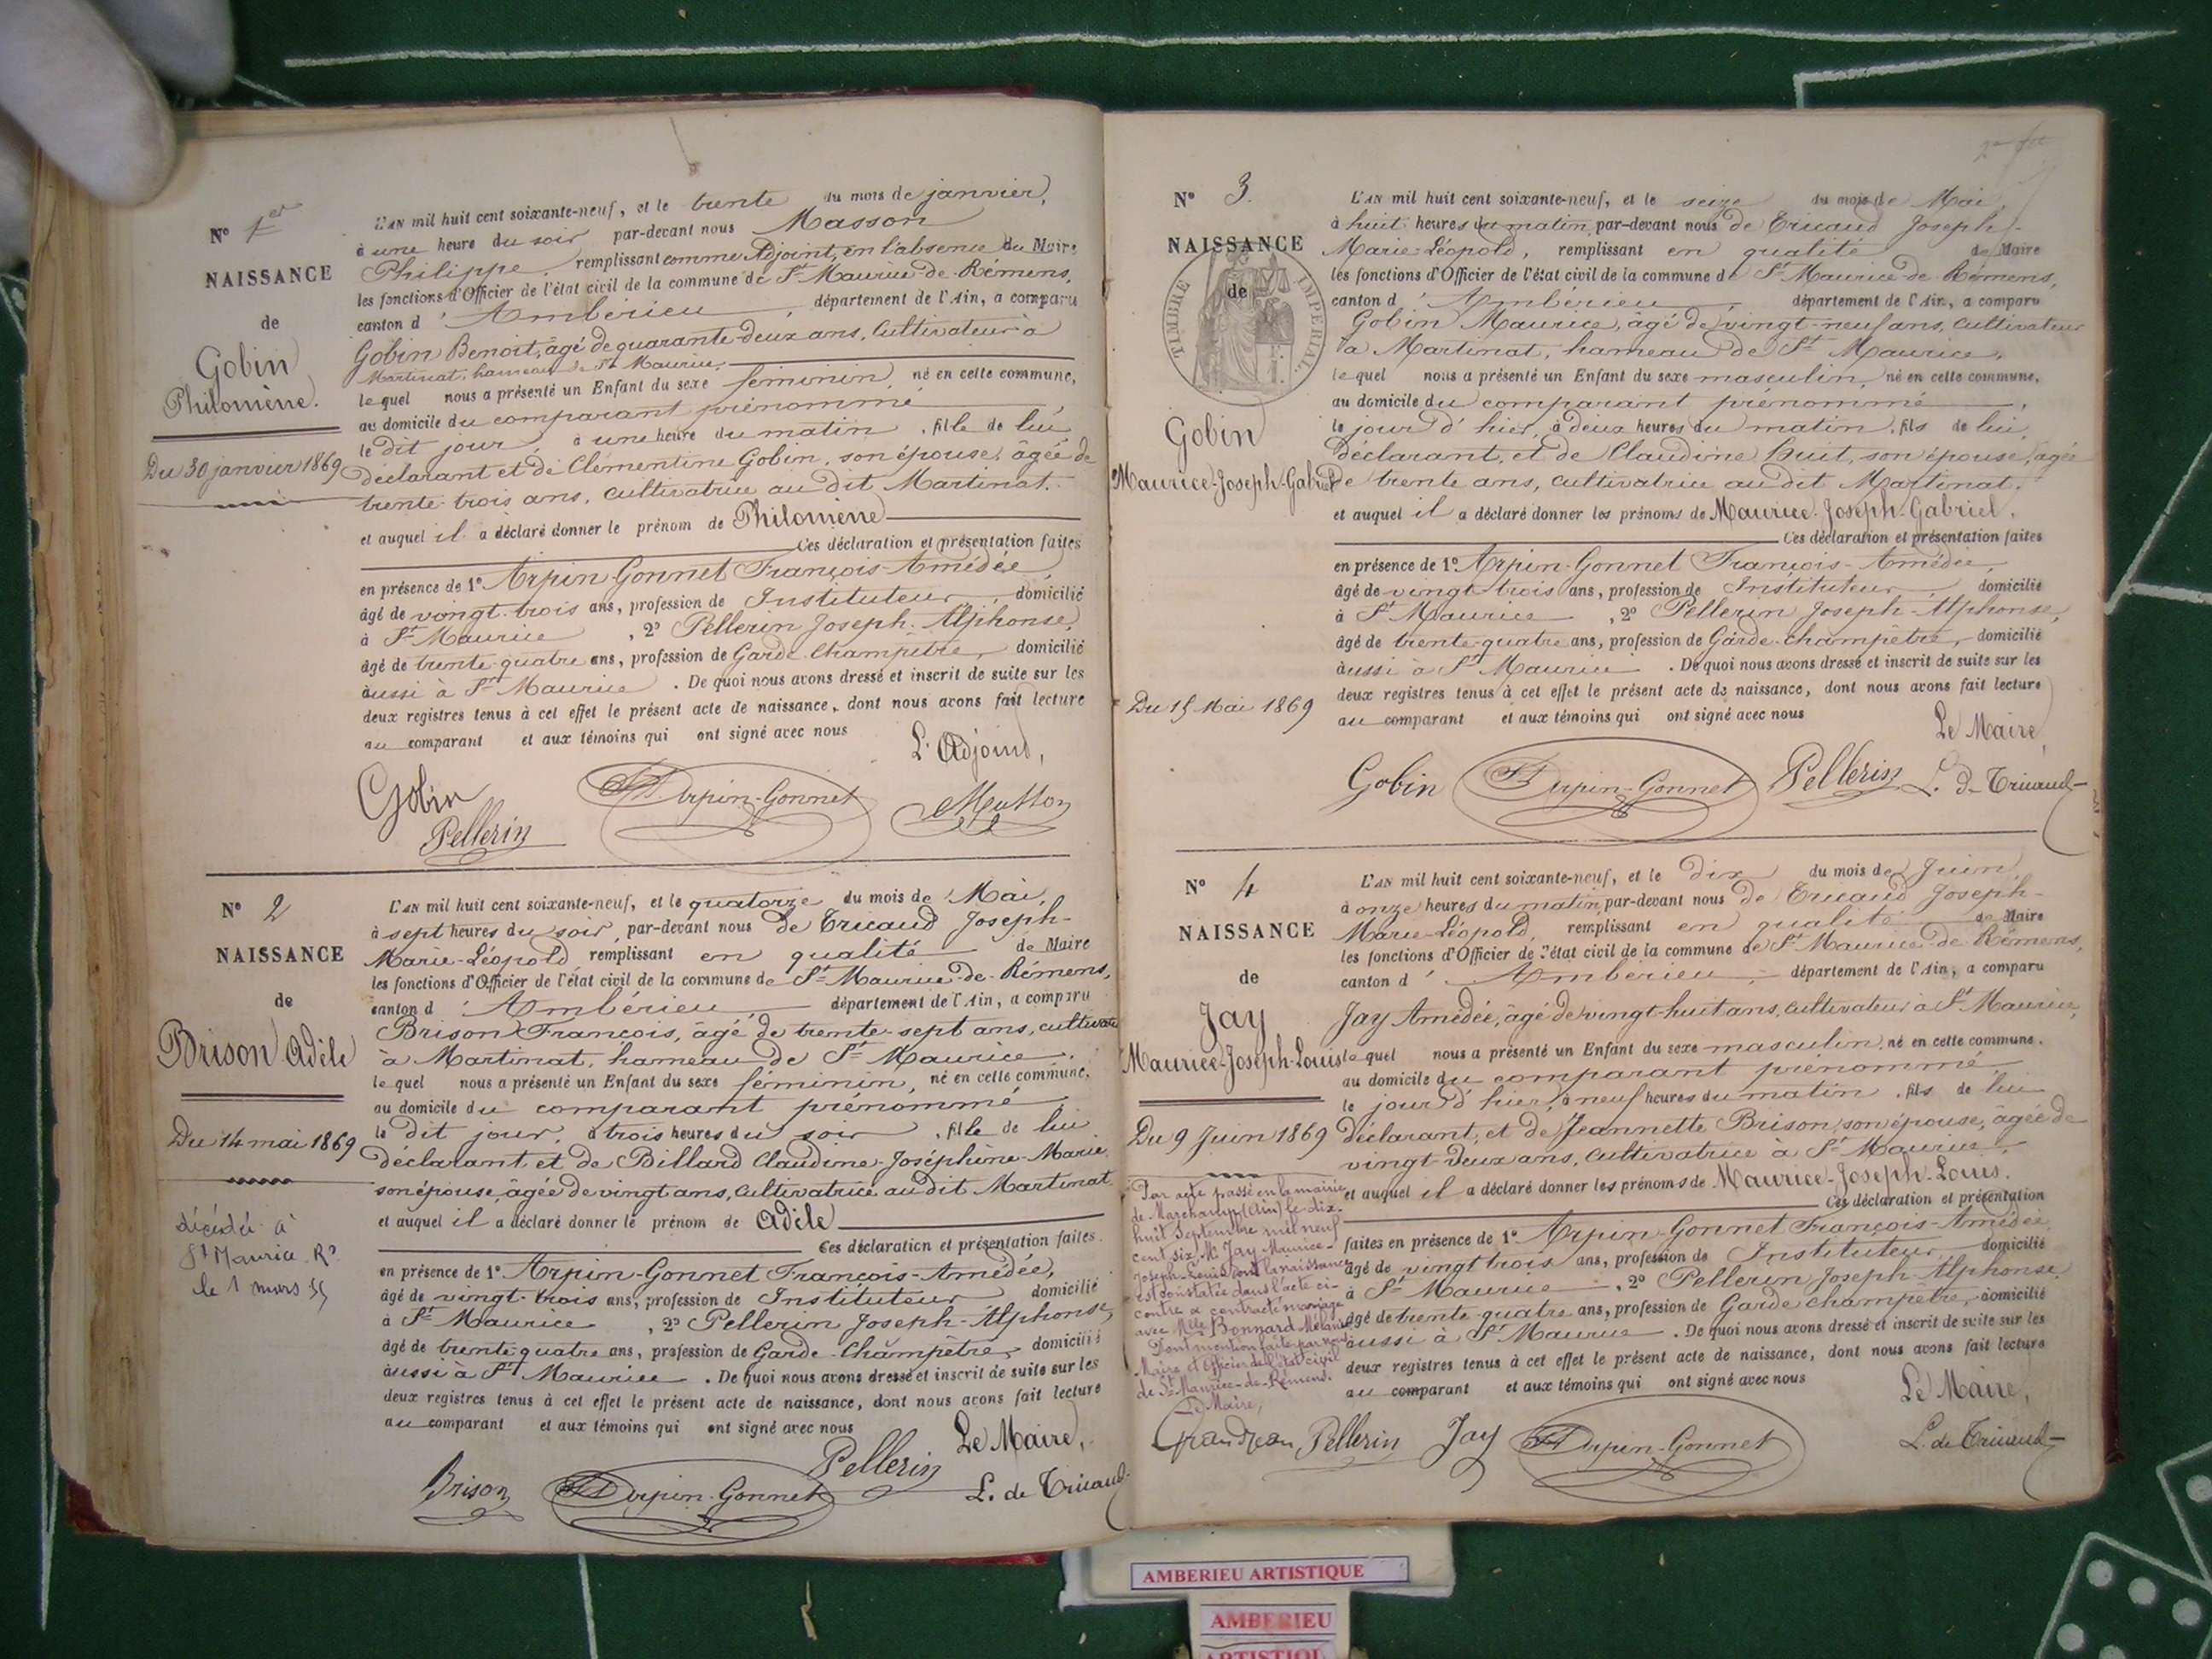 N° 1er
NAISSANCE
de
Gobin
Philomène.
Du 30 janvier 1869
L'AN mil huit cent soixante-neuf, et le trente du mois de janvier,
à une heure du soir par-devant nous Masson
Philippe, remplissant comme Adjoint, en l'absence du Maire
les fonctions d'Officier de l'état civil de la commune de St Maurice-de-Rémens,
canton d'Ambérieu, département de l'Ain, a comparu
Gobin Benoit, âgé de quarante-deux ans, cultivateur à
Martinat, hameau de St Maurice,
lequel nous a présenté un Enfant du sexe féminin, né en cette commune,
au domicile du comparant prénommé
le dit jour, à une heure du matin, fille de lui
déclarant et de Clémentine Gobin, son épouse, âgée de
trente-trois ans, cultivatrice au dit Martinat.
et auquel il a déclaré donner le prénom de Philomène
Ces déclaration et présentation faites
en présence de 1° Arpin-Gonnet François-Amédée,
âgé de vingt-trois ans, profession de Instituteur, domicilié
à St Maurice, 2° Pellerin Joseph-Alphonse,
âgé de trente-quatre ans, profession de Garde-Champêtre, domicilié
aussi à St Maurice. De quoi nous avons dressé et inscrit de suite sur les
deux registres tenus à cet effet le présent acte de naissance, dont nous avons fait lecture
au comparant et aux témoins qui ont signé avec nous
L'Adjoint,
Gobin Arpin-Gonnet Masson
Pellerin
N° 2
NAISSANCE
de
Brison Adèle
Du 14 mai 1869
décédée à
St Maurice Rs
le 1 mars
L'AN mil huit cent soixante-neuf, et le quatorze du mois de Mai,
à sept heures du soir, par-devant nous de Tricaud Joseph-
Marie-Léopold remplissant en qualité de Maire
les fonctions d'Officier de l'état civil de la commune de St Maurice-de-Rémens,
canton d'Ambérieu, département de l'Ain, a comparu
Brison François, âgé de trente-sept ans, cultivateur
à Martinat, hameau de St Maurice.
lequel nous a présenté un Enfant du sexe féminin, né en cette commune,
au domicile du comparant prénommé
le dit jour, à trois heures du soir, fille de lui
déclarant et de Billard Claudine-Joséphine-Marie,
son épouse, âgée de vingt ans, cultivatrice au dit Martinat.
et auquel il a déclaré donner le prénom de Adèle
Ces déclaration et présentation faites
en présence de 1° Arpin-Gonnet François-Amédée,
âgé de vingt-trois ans, profession de Instituteur domicilié
à St Maurice, 2° Pellerin Joseph-Alphonse,
âgé de trente-quatre ans, profession de Garde-Champêtre, domicilié
aussi à St Maurice. De quoi nous avons dressé et inscrit de suite sur les
deux registres tenus à cet effet le présent acte de naissance, dont nous avons fait lecture
au comparant et aux témoins qui ont signé avec nous
Le Maire,
Brison Arpin-Gonnet Pellerin L. de Tricaud
N° 3.
NAISSANCE
de
TIMBRE IMPERIAL.
Gobin
Maurice-Joseph-Gabriel
Du 15 Mai 1869
L'AN mil huit cent soixante-neuf, et le seize du mois de Mai,
à huit heures du matin, par-devant nous de Tricaud Joseph-
Marie-Léopold, remplissant en qualité de Maire
les fonctions d'Officier de l'état civil de la commune de St Maurice-de-Rémens,
canton d'Ambérieu, département de l'Ain, a comparu
Gobin Maurice, âgé de vingt-neuf ans, cultivateur
à Martinat, hameau de St Maurice,
lequel nous a présenté un Enfant du sexe masculin, né en cette commune,
au domicile du comparant prénommé,
le jour d'hier, à deux heures du matin, fils de lui,
déclarant, et de Claudine Huit, son épouse, âgée
de trente ans, cultivatrice au dit Martinat.
et auquel il a déclaré donner les prénoms de Maurice-Joseph-Gabriel.
Ces déclaration et présentation faites
en présence de 1° Arpin-Gonnet François-Amédée,
âgé de vingt-trois ans, profession de Instituteur, domicilié
à St Maurice, 2° Pellerin Joseph-Alphonse,
âgé de trente-quatre ans, profession de Garde-champêtre, domicilié
aussi à St Maurice. De quoi nous avons dressé et inscrit de suite sur les
deux registres tenus à cet effet le présent acte de naissance, dont nous avons fait lecture
au comparant et aux témoins qui ont signé avec nous
Le Maire,
Gobin Arpin-Gonnet Pellerin L. de Tricaud
N° 4
NAISSANCE
de
Jay
Maurice-Joseph-Louis
Du 9 Juin 1869
Par acte passé en la mairie
de Marchamp (Ain) le dix-
huit Septembre mil neuf
cent six, Mr Jay Maurice-
Joseph-Louis dont la naissance
est constatée dans l'acte ci-
contre a contracté mariage
avec Mlle Bonnard Mélanie
Dont mention faite par nous
Maire et Officier de l'état civil
de St Maurice-de-Rémens.
Le Maire,
Grandjean
L'AN mil huit cent soixante-neuf, et le dix du mois de Juin,
à onze heures du matin, par-devant nous de Tricaud Joseph-
Marie-Léopold, remplissant en qualité de Maire
les fonctions d'Officier de l'état civil de la commune de St Maurice-de-Rémens,
canton d'Ambérieu, département de l'Ain, a comparu
Jay Amédée, âgé de vingt-huit ans, cultivateur à St Maurice,
lequel nous a présenté un Enfant du sexe masculin, né en cette commune.
au domicile du comparant prénommé,
le jour d'hier, à neuf heures du matin, fils de lui
déclarant, et de Jeannette Brison, son épouse, âgée de
vingt-deux ans, cultivatrice à St Maurice,
et auquel il a déclaré donner les prénoms de Maurice-Joseph-Louis.
Ces déclaration et présentation
faites en présence de 1° Arpin-Gonnet François-Amédée,
âgé de vingt trois ans, profession de Instituteur, domicilié
à St Maurice, 2° Pellerin Joseph-Alphonse,
âgé de trente-quatre ans, profession de Garde champêtre, domicilié
aussi à St Maurice. De quoi nous avons dressé et inscrit de suite sur les
deux registres tenus à cet effet le présent acte de naissance, dont nous avons fait lecture
au comparant et aux témoins qui ont signé avec nous
Le Maire,
Pellerin Jay Arpin-Gonnet L. de Tricaud
AMBERIEU ARTISTIQUE
AMBERIEU
ARTISTIQUE